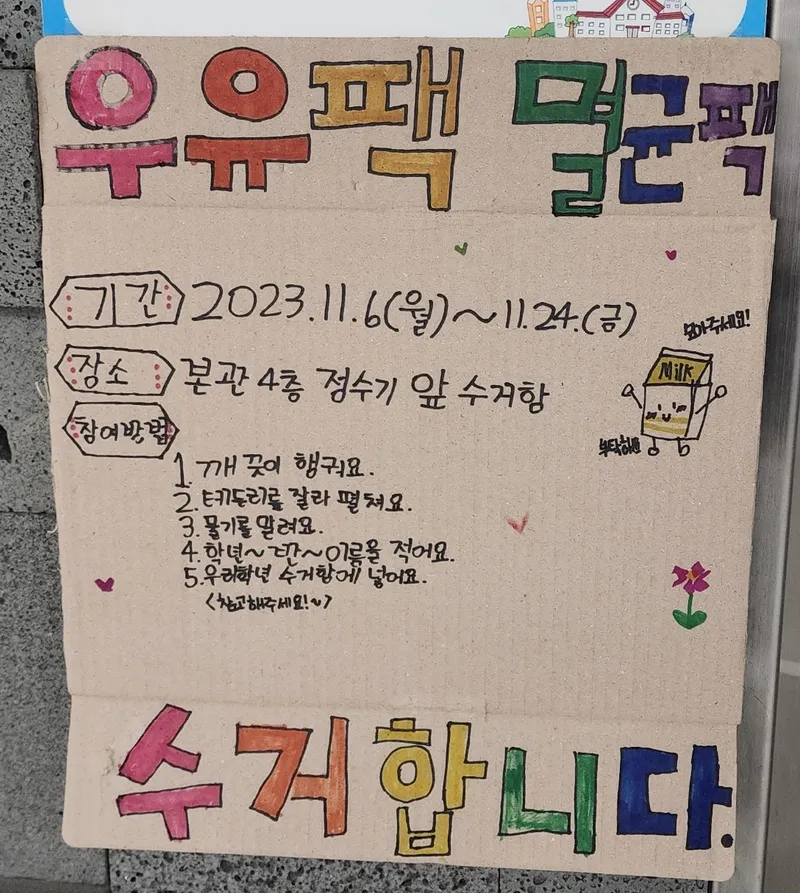 우유팩 멸균팩
기간 2023.11.6(월)~11.24.(금)
장소 본관 4층 정수기 앞 수거함
참여방법
1. 깨끗이 헹궈요.
2. 테두리를 잘라 펼쳐요.
3. 물기를 말려요.
4. 학년~반~이름을 적어요.
5. 우리학년 수거함에 넣어요.
<참고해주세요!~>
모아주세요!
MILK
수거합니다.